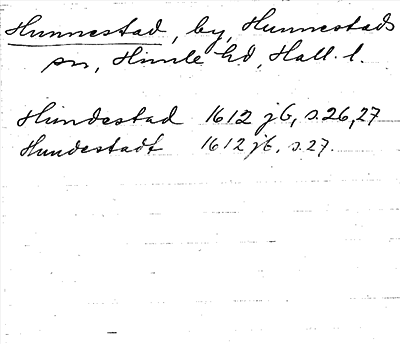 Hunnestad, by, Hunnestads
sn, Himle hd, Hall. l.
Hundestad 1612 jb, s. 26, 27
Hundestadt 1612 jb, s. 27.